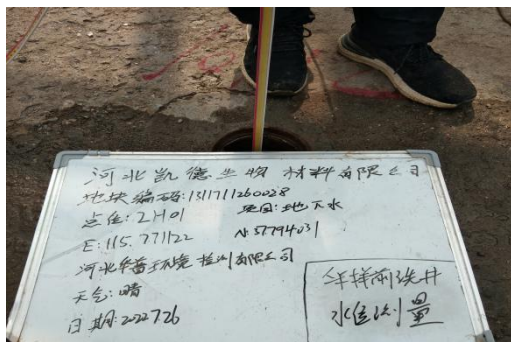 河北凯德生物材料有限公司
地块编码:1311711260028
点位:2H01 项目:地下水
E:115.771122 N:37.794031
河北华普环境检测有限公司
天气:晴
日期:2022.7.26
采样前洗井
水位测量